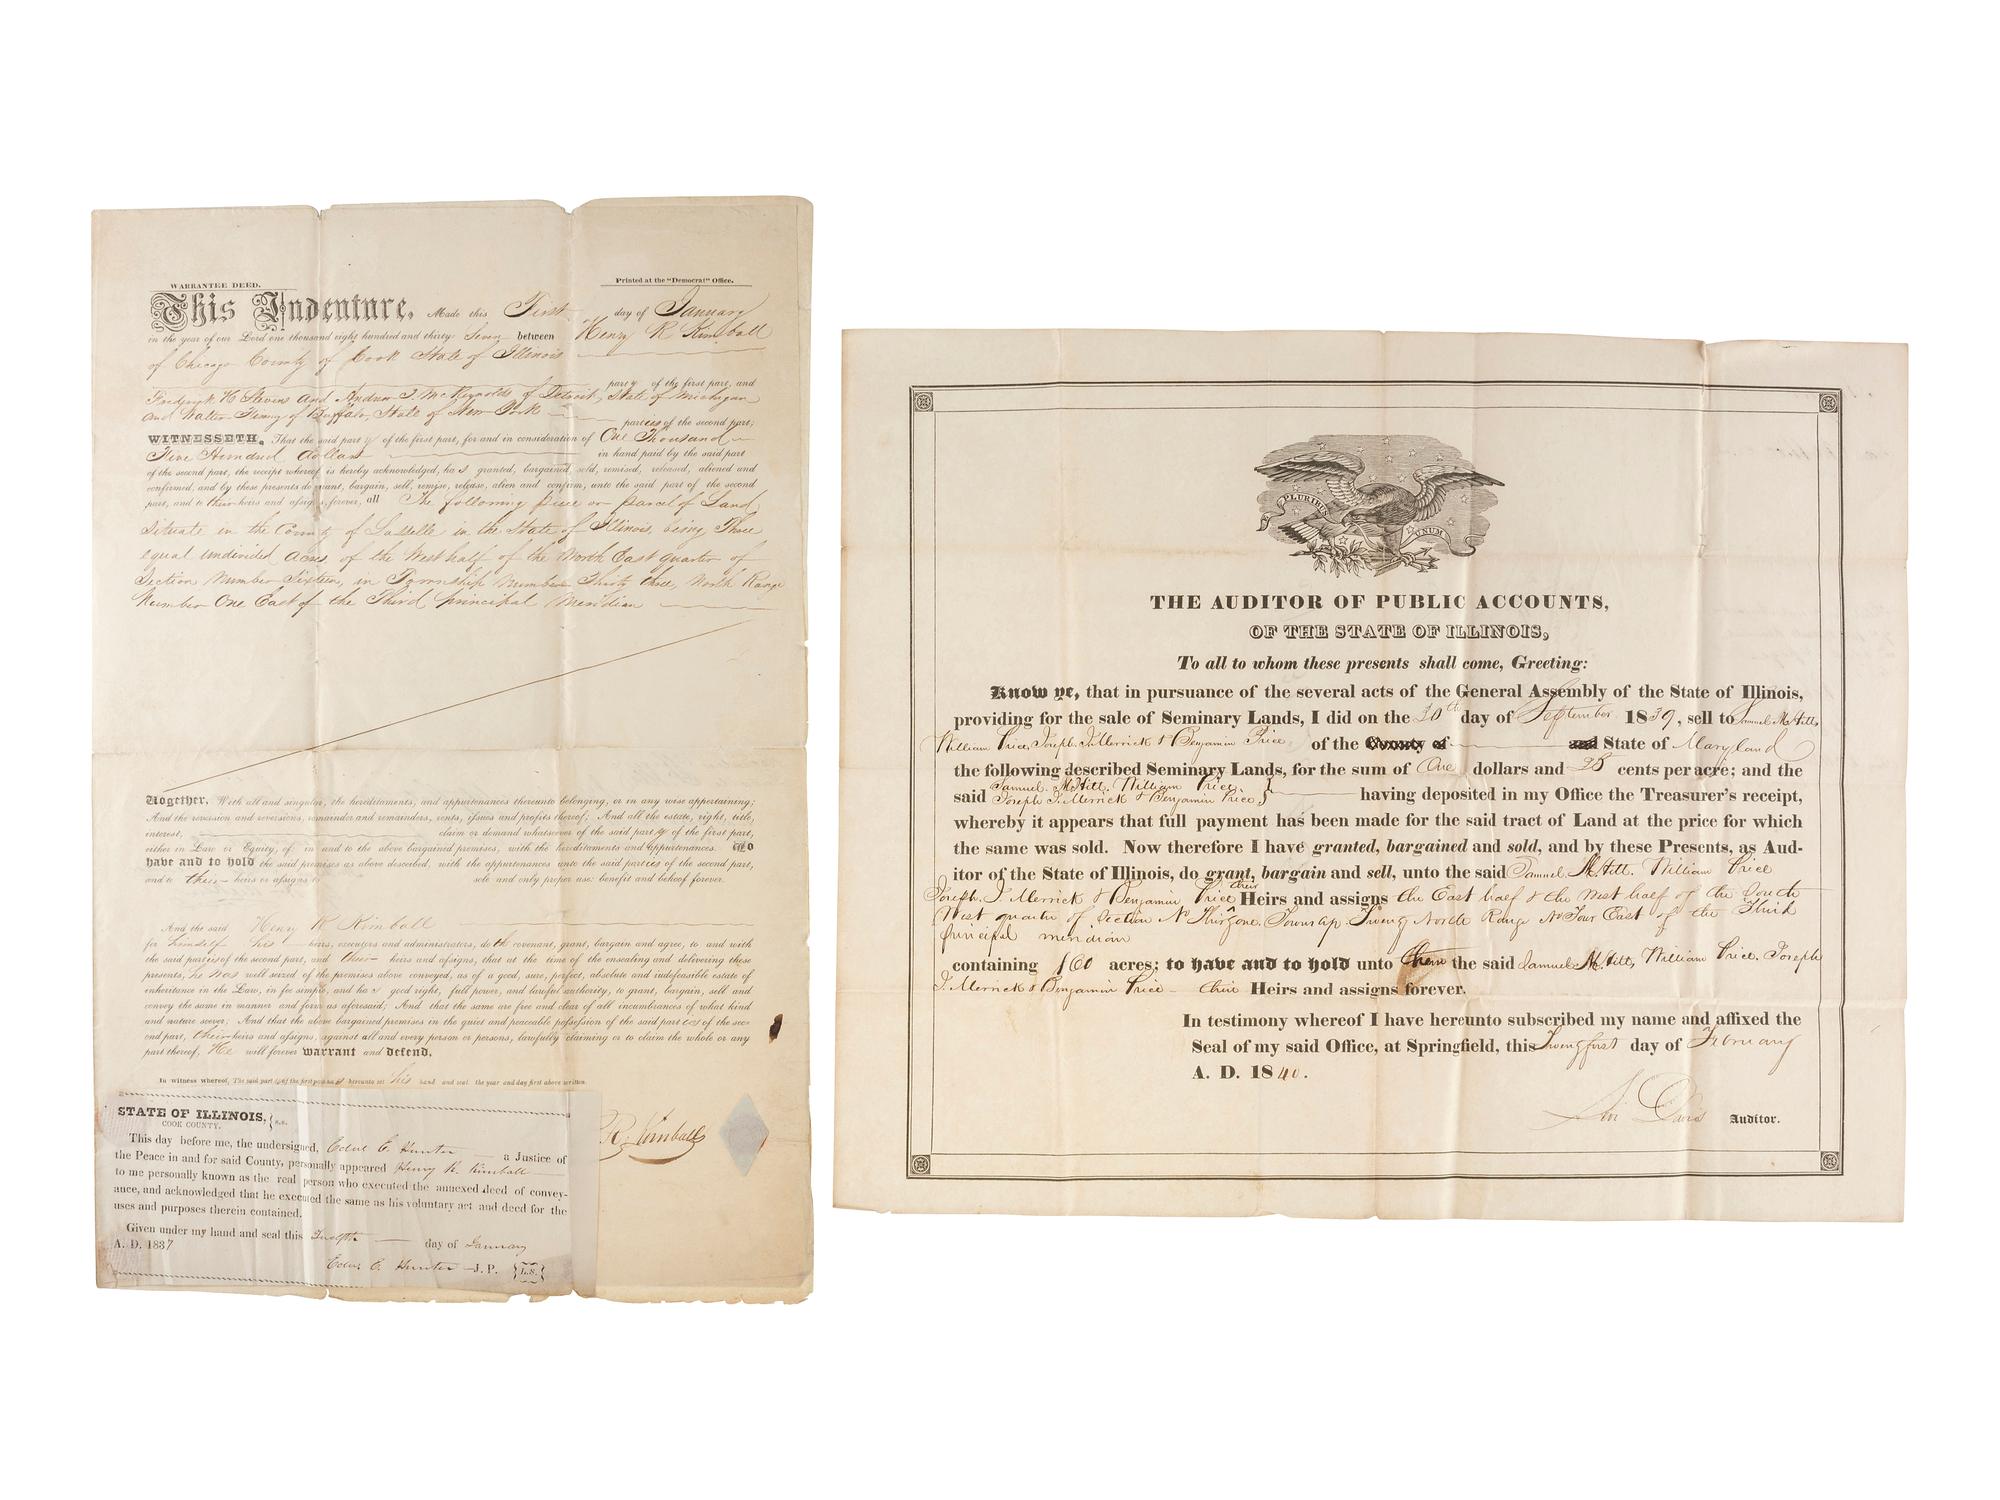 WARRANTEE DEED.
Printed at the "Democrat" Office.
This Indenture, Made this First day of January
in the year of our Lord one thousand eight hundred and thirty Seven between Henry R Kimball
of Chicago County of Cook State of Illinois
party of the first part, and
Frederick H Stevens and Andrew T McReynolds of Detroit, State of Michigan
and Walter Henry of Buffalo, State of New York
parties of the second part;
WITNESSETH, That the said party of the first part, for and in consideration of One Thousand
Five Hundred dollars in hand paid by the said part
of the second part, the receipt whereof is hereby acknowledged, has granted, bargained, sold, remised, released, aliened and
confirmed, and by these presents do grant, bargain, sell, remise, release, alien and confirm, unto the said part of the second
part, and to their heirs and assigns, forever, all The following piece or parcel of Land
Situate in the County of LaSalle in the State of Illinois, being Three
equal undivided acres of the West half of the North East quarter of
Section Number Sixteen, in Township Number Thirty three, North Range
Number One East of the Third principal Meridian
Together, With all and singular, the hereditaments, and appurtenances thereunto belonging, or in any wise appertaining;
And the revession and reversions, remainder and remainders, rents, issues and profits thereof; And all the estate, right, title,
interest, claim or demand whatsoever of the said party of the first part,
either in Law or Equity, of, in and to the above bargained premises, with the hereditaments and appurtenances. To
have and to hold the said premises as above descibed, with the appurtenances unto the said parties of the second part,
and to their heirs or assigns to sole and only proper use: benefit and behoof forever.
And the said Henry R Kimball
for himself his heirs, executors and administrators, doth covenant, grant, bargain and agree, to and with
the said parties of the second part, and their heirs and assigns, that at the time of the ensealing and delivering these
presents, he was well seized of the premises above conveyed, as of a good, sure, perfect, absolute and indefeasible estate of
inheritance in the Law, in fee simple, and has good right, full power, and lawful authority, to grant, bargain, sell and
convey the same in manner and form as aforesaid; And that the same are free and clear of all incumbrances of what kind
and nature soever; And that the above bargained premises in the quiet and peaceable possession of the said parties of the sec-
ond part, their heirs and assigns, against all and every person or persons, lawfully claiming or to claim the whole or any
part thereof, He will forever warrant and defend.
In witness whereof, The said party of the first part has hereunto set his hand and seal the year and day first above written.
R. Kimball
STATE OF ILLINOIS, } s.s.
COOK COUNTY.
This day before me, the undersigned, E. Hunter a Justice of
the Peace in and for said County, personally appeared Henry R. Kimball
to me personally known as the real person who executed the annexed deed of convey-
ance, and acknowledged that he executed the same as his voluntary act and deed for the
uses and purposes therein contained.
Given under my hand and seal this Twelfth day of January
A. D. 1837
E. Hunter J. P. {L.S.}
E PLURIBUS UNUM
THE AUDITOR OF PUBLIC ACCOUNTS,
OF THE STATE OF ILLINOIS,
To all to whom these presents shall come, Greeting:
Know ye, that in pursuance of the several acts of the General Assembly of the State of Illinois,
providing for the sale of Seminary Lands, I did on the 20th day of September 1839, sell to Samuel M. Hitt,
William Price, Joseph I. Merrick & Benjamin Price of the County of and State of Maryland
the following described Seminary Lands, for the sum of One dollars and 25 cents per acre; and the
said Samuel M. Hitt, William Price
Joseph I. Merrick & Benjamin Price, } having deposited in my Office the Treasurer's receipt,
whereby it appears that full payment has been made for the said tract of Land at the price for which
the same was sold. Now therefore I have granted, bargained and sold, and by these Presents, as Aud-
itor of the State of Illinois, do grant, bargain and sell, unto the said Samuel M. Hitt. William Price
Joseph I. Merrick & Benjamin Price their Heirs and assigns the East half & the West half of the South
West quarter of Section No Thirty one Township Twenty North Range No Four East of the Third
principal meridian
containing 160 acres; to have and to hold unto them the said Samuel M. Hitt, William Price. Joseph
I. Merrick & Benjamin Price their Heirs and assigns forever.
In testimony whereof I have hereunto subscribed my name and affixed the
Seal of my said Office, at Springfield, this Twenty first day of February
A. D. 1840.
Levi Davis Auditor.